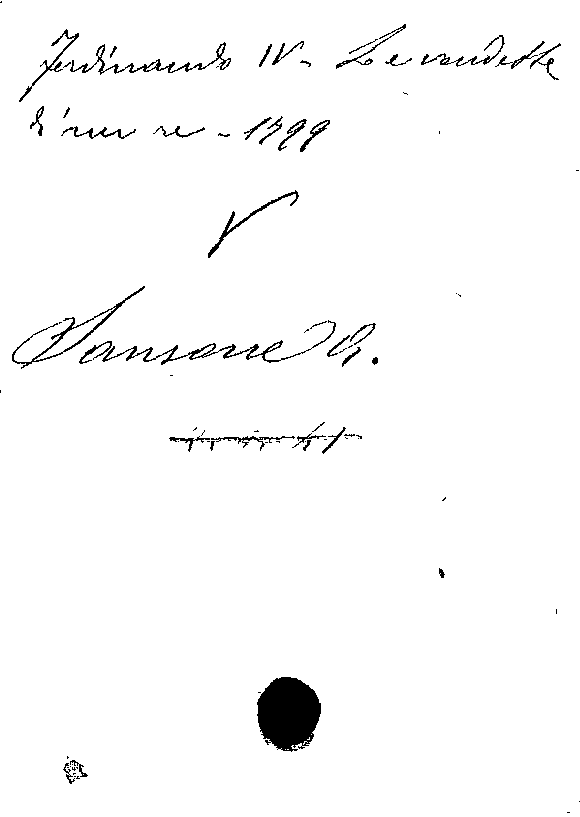 Ferdinando IV - Le vendette
di un re - 1799
V
Sansone A.